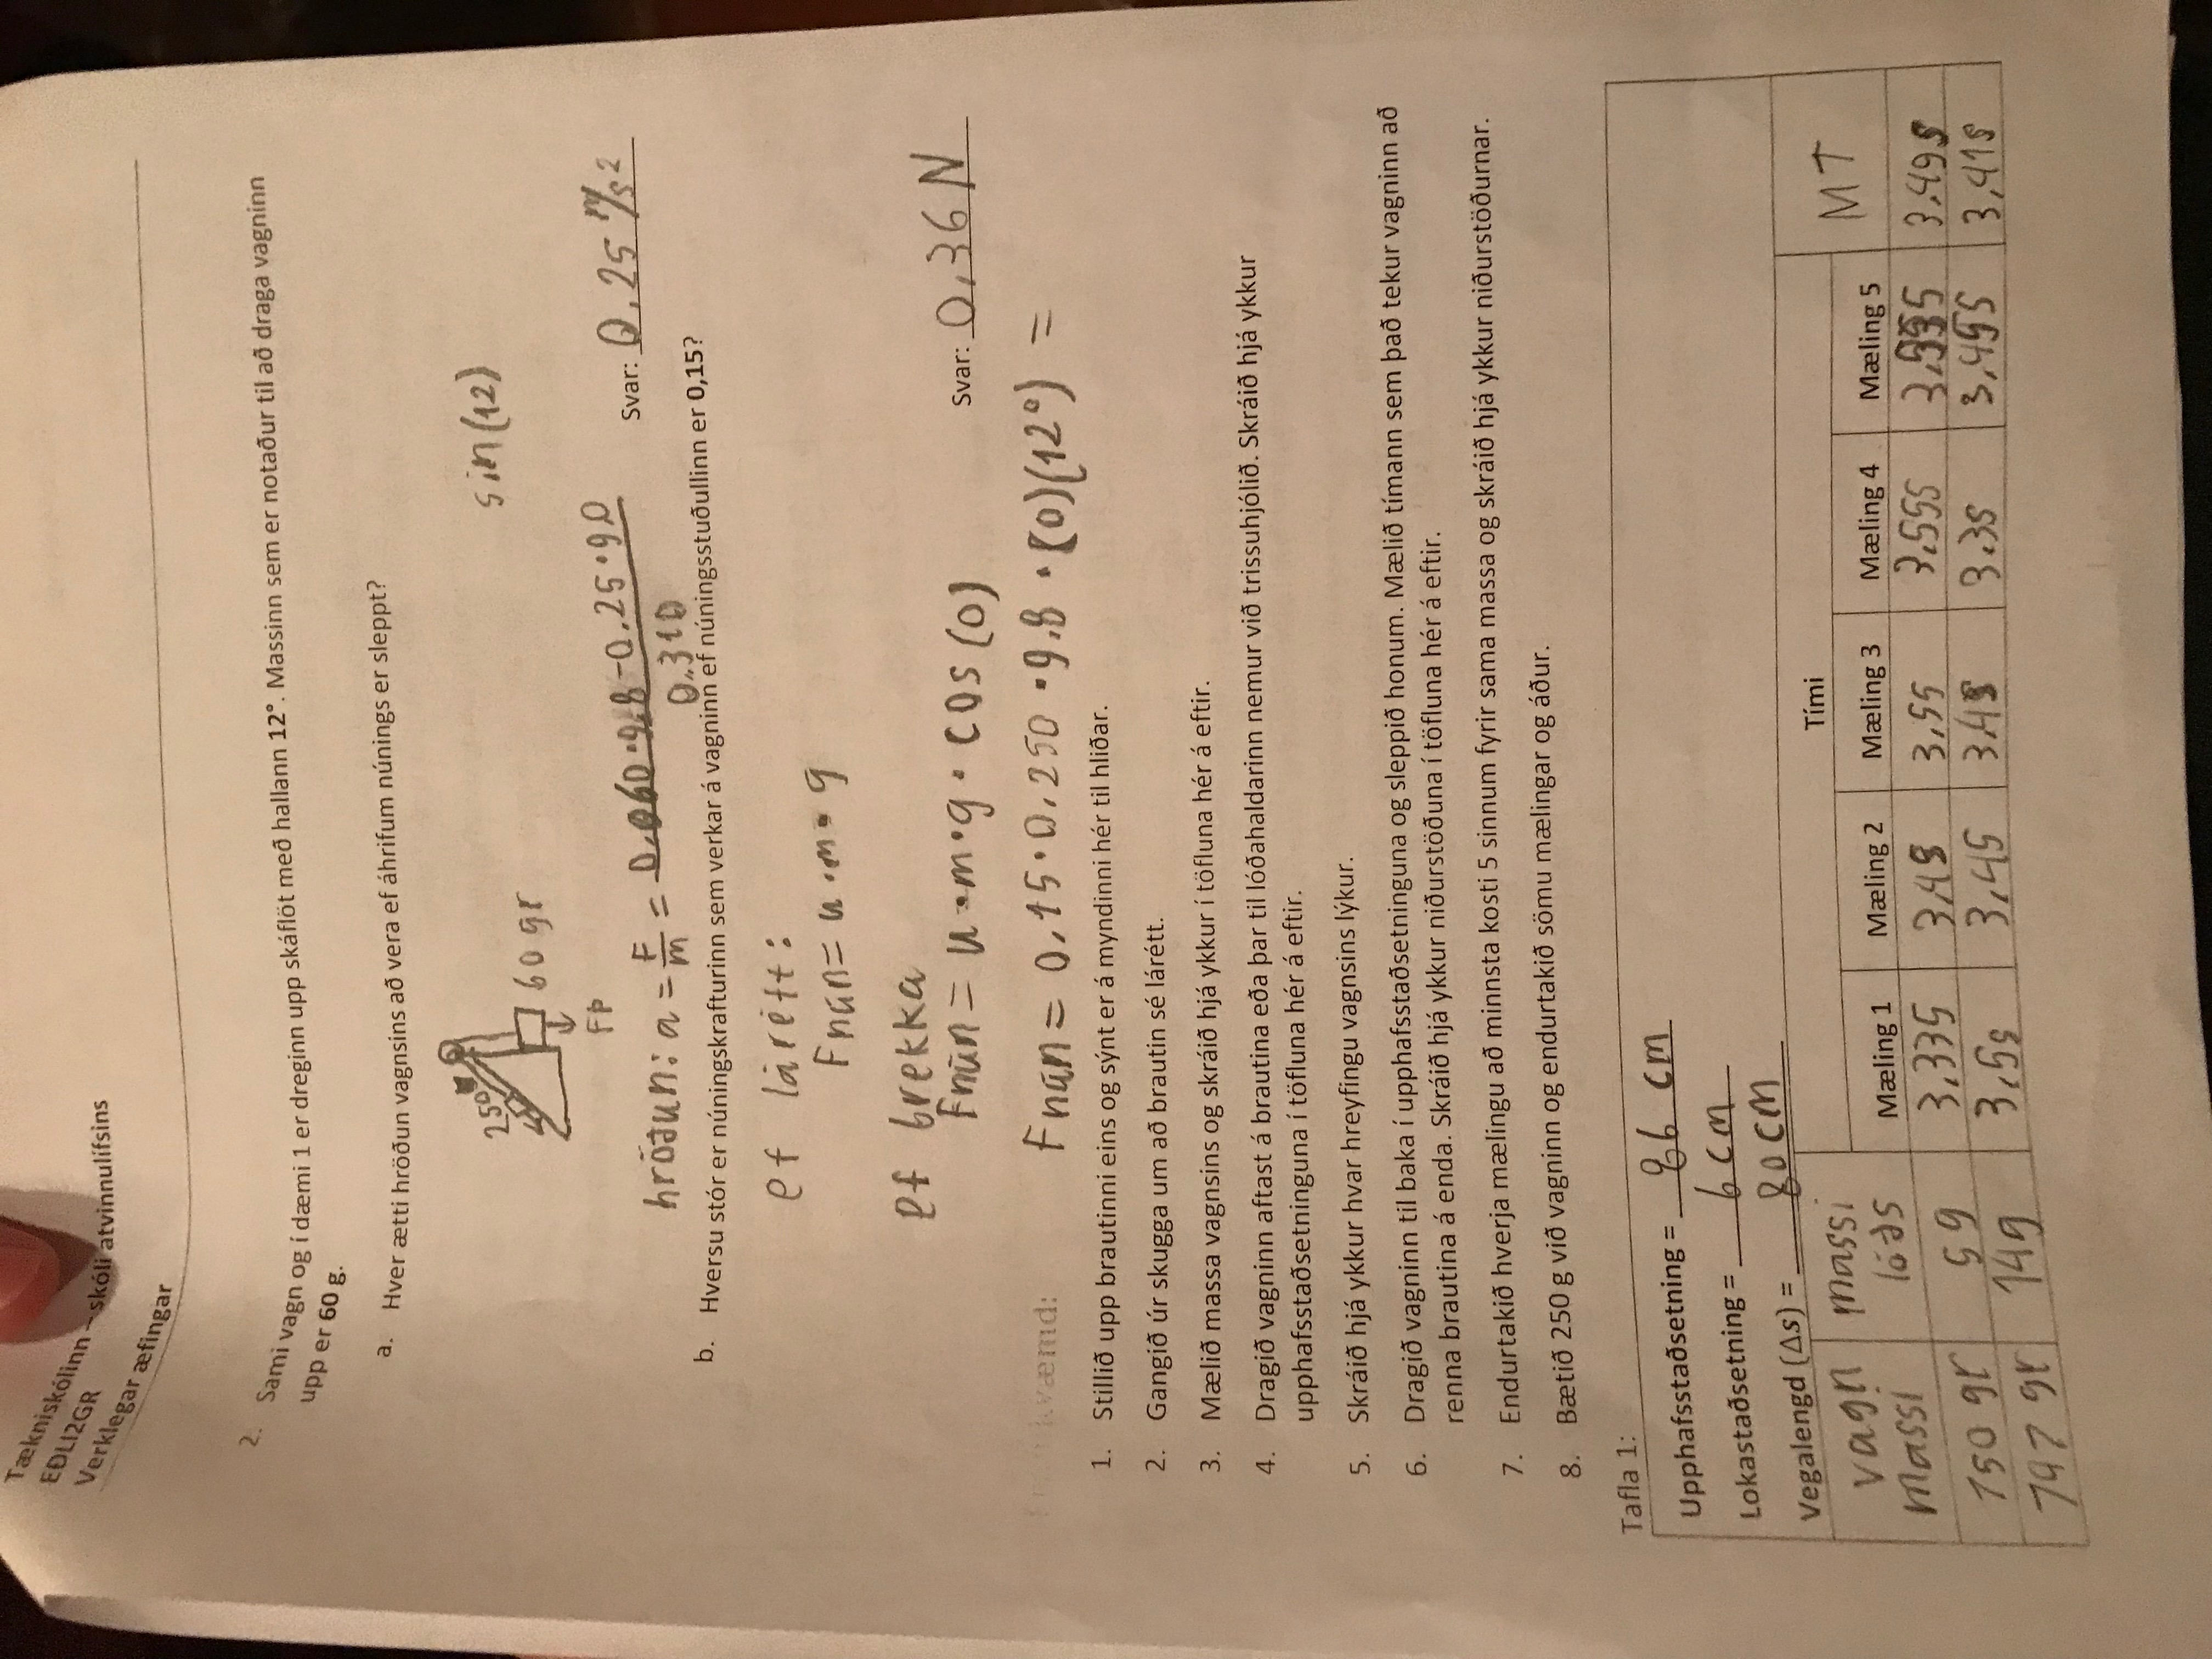 Tækniskólinn – skóli atvinnulífsins
EÐLI2GR
Verklegar æfingar
2. Sami vagn og í dæmi 1 er dreginn upp skáflöt með hallann 12°. Massinn sem er notaður til að draga vagninn
upp er 60 g.
a. Hver ætti hröðun vagnsins að vera ef áhrifum núnings er sleppt?
250
60 gr
FÞ
sin(12)
hröðun: a = F/m = 0.060·9.8-0.25·9.0 / 0.310
Svar: 0.25 m/s²
b. Hversu stór er núningskrafturinn sem verkar á vagninn ef núningsstuðullinn er 0,15?
ef lárétt:
Fnún= u·m·g
ef brekka
Fnún = u·m·g·cos(0)
Svar: 0,36 N
kvæmd:
Fnún = 0,15·0,250·9.8·(0)(12°) =
1. Stillið upp brautinni eins og sýnt er á myndinni hér til hliðar.
2. Gangið úr skugga um að brautin sé lárétt.
3. Mælið massa vagnsins og skráið hjá ykkur í töfluna hér á eftir.
4. Dragið vagninn aftast á brautina eða þar til lóðahaldarinn nemur við trissuhjólið. Skráið hjá ykkur
upphafsstaðsetninguna í töfluna hér á eftir.
5. Skráið hjá ykkur hvar hreyfingu vagnsins lýkur.
6. Dragið vagninn til baka í upphafsstaðsetninguna og sleppið honum. Mælið tímann sem það tekur vagninn að
renna brautina á enda. Skráið hjá ykkur niðurstöðuna í töfluna hér á eftir.
7. Endurtakið hverja mælingu að minnsta kosti 5 sinnum fyrir sama massa og skráið hjá ykkur niðurstöðurnar.
8. Bætið 250 g við vagninn og endurtakið sömu mælingar og áður.
Tafla 1:
Upphafsstaðsetning = 86 cm
Lokastaðsetning = 6 cm
Vegalengd (Δs) = 80 cm
vagn massi
massi lóðs
Tími
MT
Mæling 1 Mæling 2 Mæling 3 Mæling 4 Mæling 5
750 gr 5g 3,33s 3,4s 3,5s 3,55s 3,49s
797 gr 14g 3,5s 3,4s 3,4s 3.3s 3,45s 3,41s